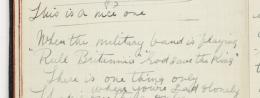 This is a nice one
"When the military band is playing
"Rule Britannia" "God save the King"
There is one thing only
where you're